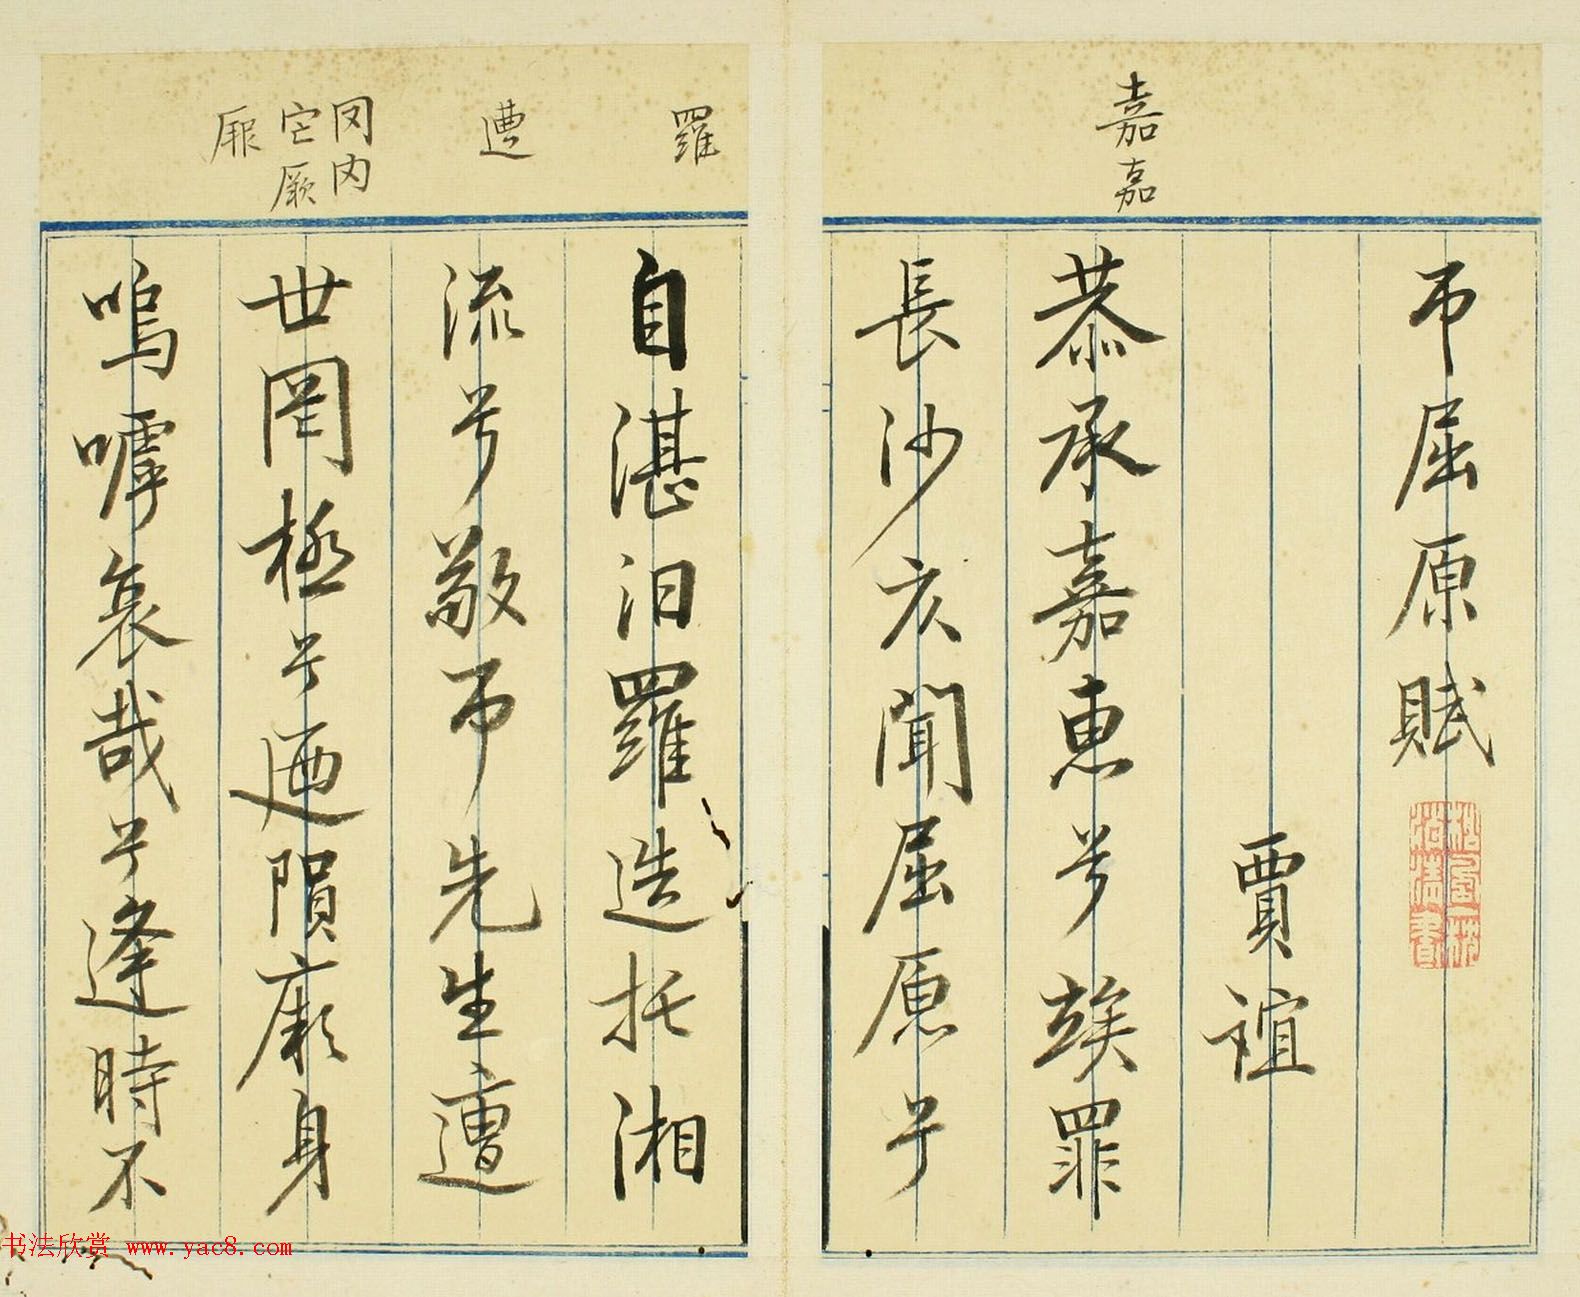 嘉嘉
弔屈原賦
賈誼
恭承嘉惠兮竢罪
長沙仄聞屈原兮
羅
遭
厥
自湛汨羅造托湘
流兮敬弔先生遭
世罔極兮迺隕厥身
嗚嘑哀哉兮逢時不
书法欣赏 www.yac8.com